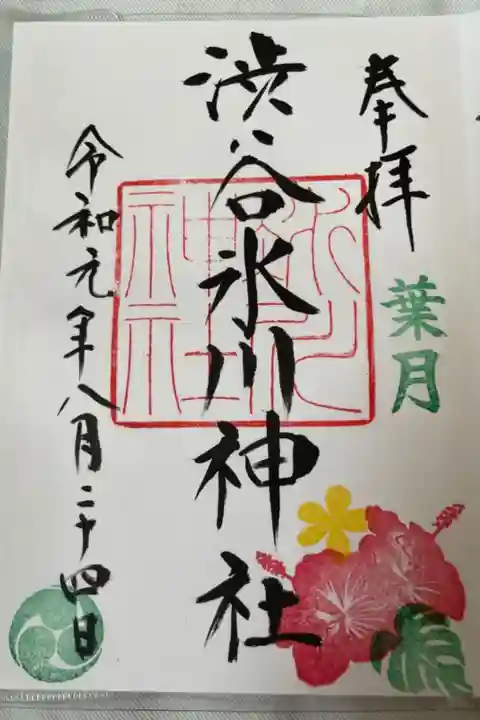 奉拝
葉月
渋谷氷川神社
氷川神社
令和元年八月二十四日